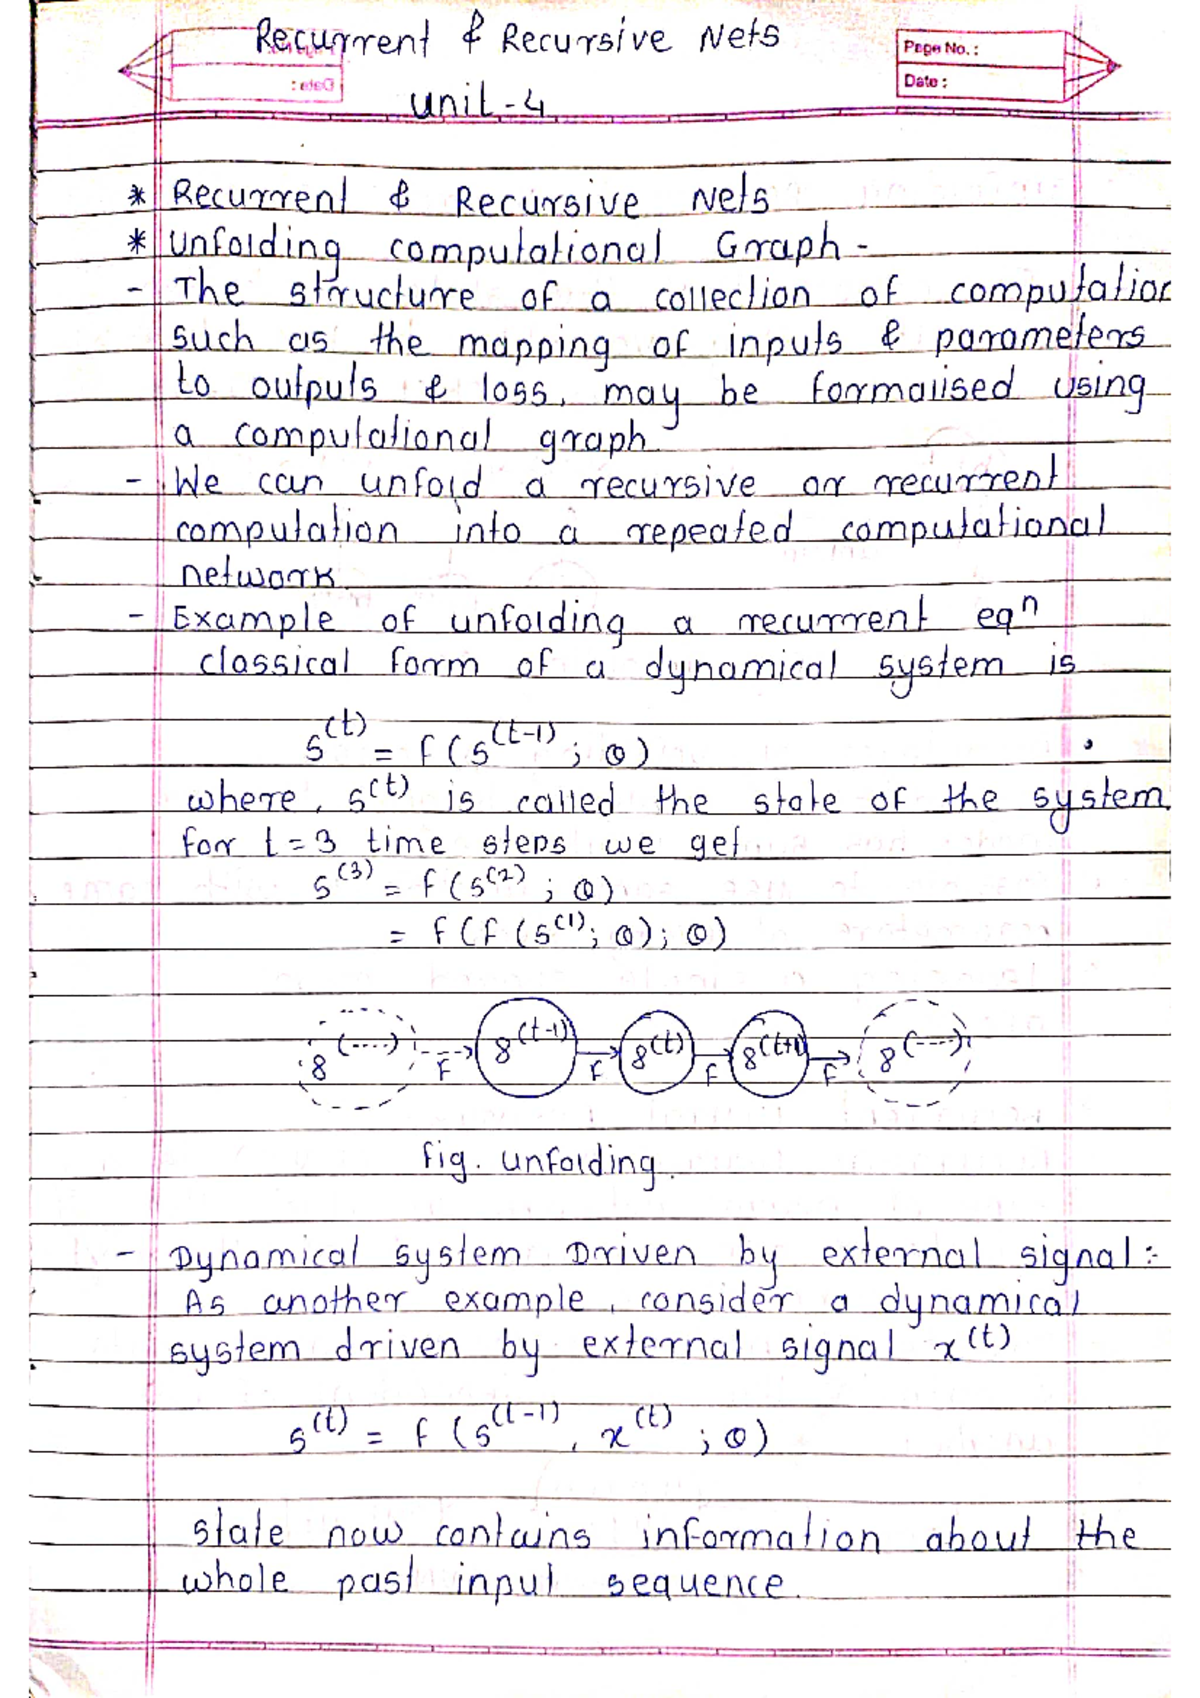 Recurrent & Recursive Nets
Page No. :
Date :
Unit - 4
* Recurrent & Recursive Nets
* Unfolding computational Graph -
- The structure of a collection of computation
such as the mapping of inputs & parameters
to outputs & loss, may be formalised using
a computational graph.
- We can unfold a recursive or recurrent
computation into a repeated computational
network.
- Example of unfolding a recurrent eqⁿ
classical form of a dynamical system is
s^(t) = f (s^(t-1) ; θ)
where, s^(t) is called the state of the system.
for t = 3 time steps we get
s^(3) = f (s^(2) ; θ)
= f (f (s^(1) ; θ) ; θ)
s^(....) f s^(t-1) f s^(t) f s^(t+1) f s^(....)
fig. unfolding.
- Dynamical system Driven by external signal :-
As another example, consider a dynamical
system driven by external signal x^(t)
s^(t) = f (s^(t-1), x^(t) ; θ)
state now contains information about the
whole past input sequence.